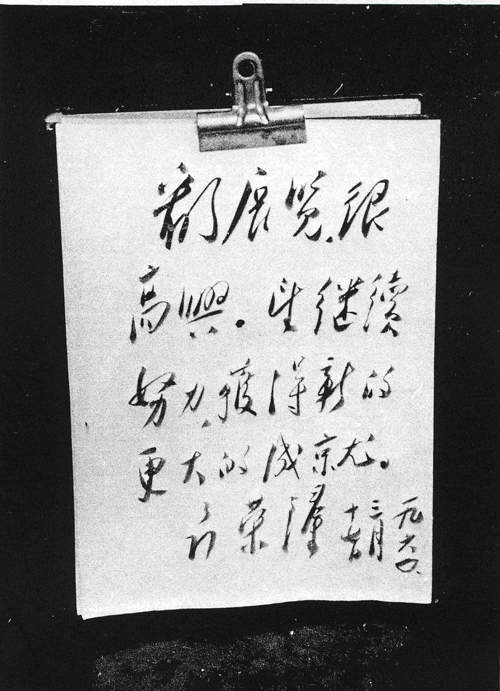 看了展览,很
高興。望继續
努力,獲得新的
更大的成就。
荣
一九六〇.
三月